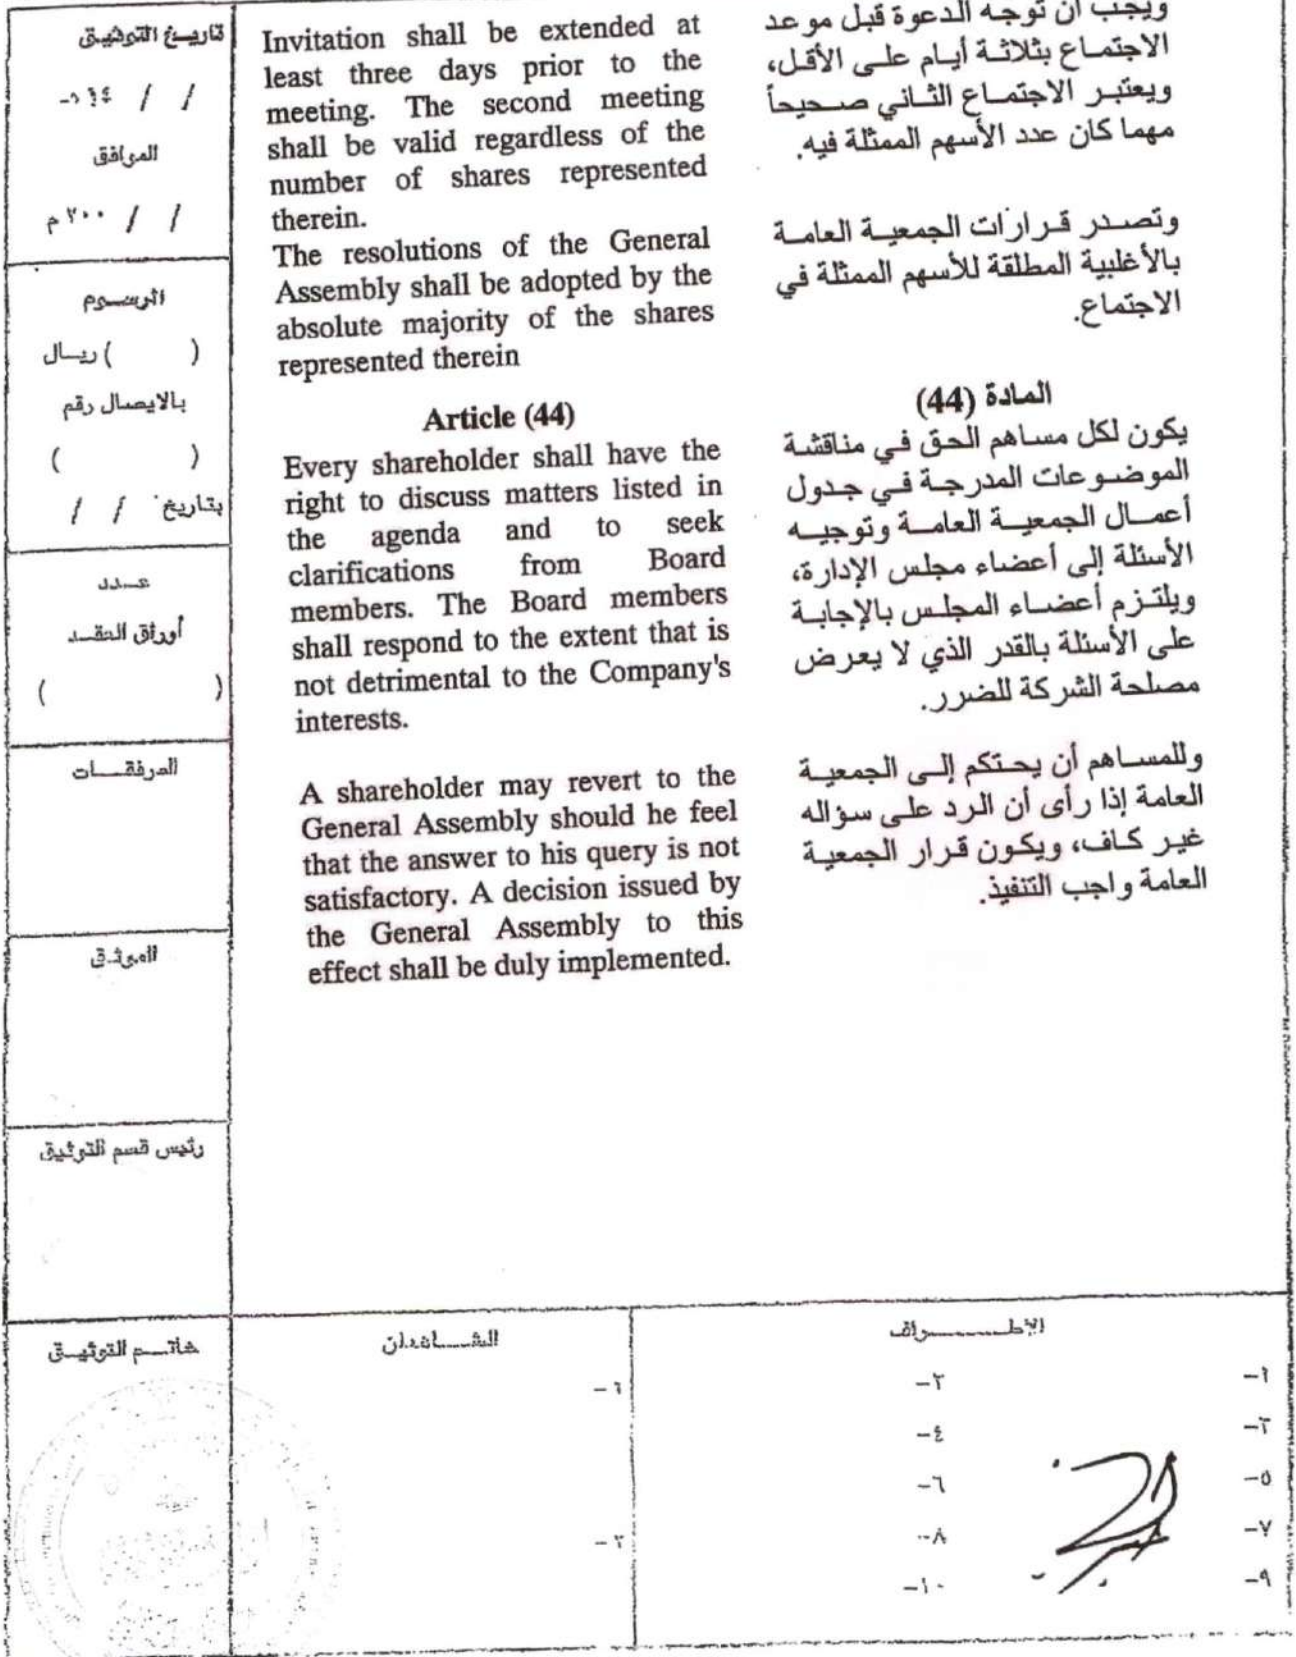 تاريخ التوثيق
/ / ١٤هـ
الموافق
/ / ٢٠٠م
الرسوم
( ) ريال
بالايصال رقم
( )
بتاريخ / /
عدد
أوراق العقد
( )
المرفقات
الموثق
رئيس قسم التوثيق
خاتم التوثيق
Invitation shall be extended at
least three days prior to the
meeting. The second meeting
shall be valid regardless of the
number of shares represented
therein.
The resolutions of the General
Assembly shall be adopted by the
absolute majority of the shares
represented therein
Article (44)
Every shareholder shall have the
right to discuss matters listed in
the agenda and to seek
clarifications from Board
members. The Board members
shall respond to the extent that is
not detrimental to the Company's
interests.
A shareholder may revert to the
General Assembly should he feel
that the answer to his query is not
satisfactory. A decision issued by
the General Assembly to this
effect shall be duly implemented.
ويجب أن توجه الدعوة قبل موعد
الاجتماع بثلاثة أيام على الأقل،
ويعتبر الاجتماع الثاني صحيحاً
مهما كان عدد الأسهم الممثلة فيه.
وتصدر قرارات الجمعية العامة
بالأغلبية المطلقة للأسهم الممثلة في
الاجتماع.
المادة (44)
يكون لكل مساهم الحق في مناقشة
الموضوعات المدرجة في جدول
أعمال الجمعية العامة وتوجيه
الأسئلة إلى أعضاء مجلس الإدارة،
ويلتزم أعضاء المجلس بالإجابة
على الأسئلة بالقدر الذي لا يعرض
مصلحة الشركة للضرر.
وللمساهم أن يحتكم إلى الجمعية
العامة إذا رأى أن الرد على سؤاله
غير كاف، ويكون قرار الجمعية
العامة واجب التنفيذ.
الأطراف
١- ٢-
٣- ٤-
٥- ٦-
٧- ٨-
٩- ١٠-
الشاهدان
١-
٢-